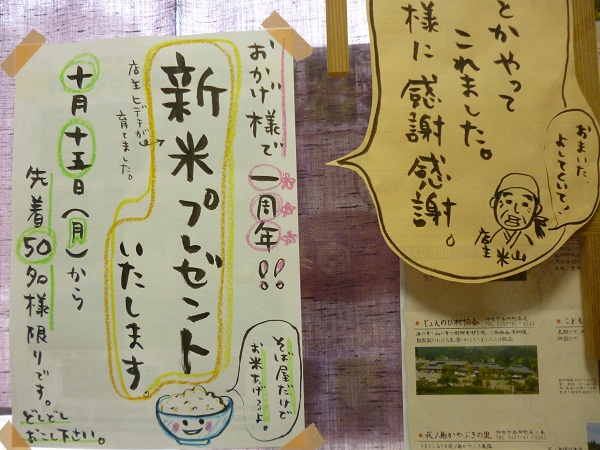 おかげ様で一周年!!
新米プレゼント
いたします。
店主ヒデキが
育てました。
十月十五日(月)から
先着50名様限りです。
どしどし
おこし下さい。
そば屋だけど
お米あげるよ。
とかやって
これました。
様に感謝感謝。
おまいた、
よしてくいて♪
店主
米山
じょんのび村協会
荻ノ島かやぶきの里
こども